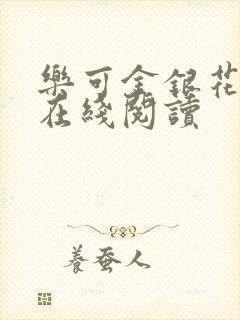 樂可金銀花
在綫閱讀
養蠶人